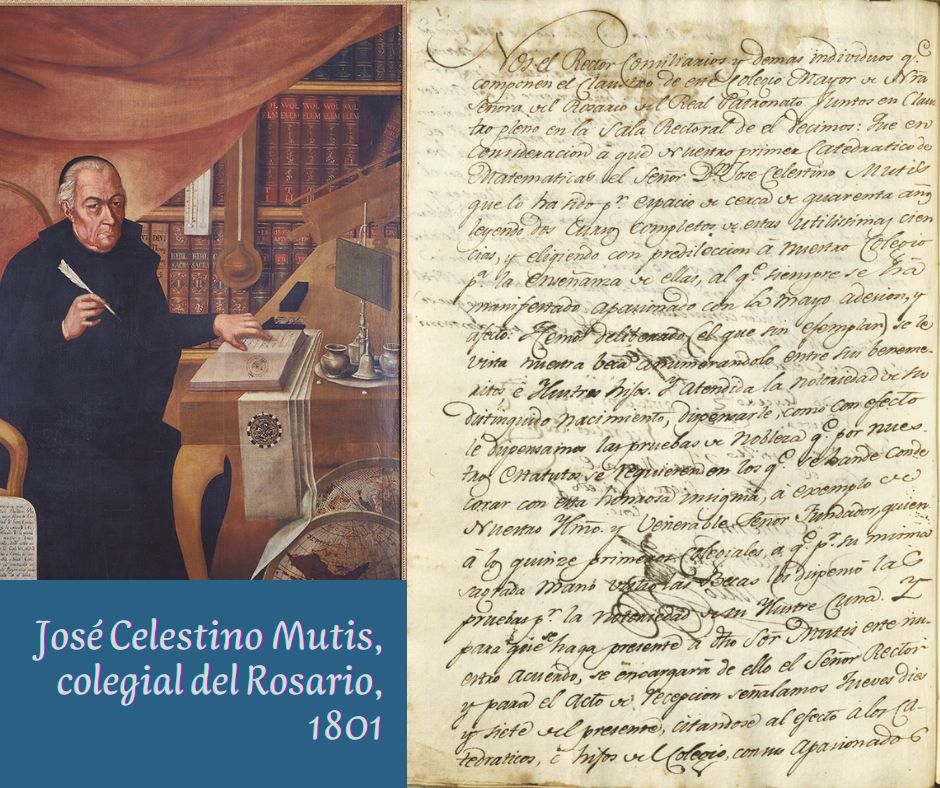 José Celestino Mutis,
colegial del Rosario,
1801
Nos el Rector Conciliarios y demas individuos q.e
componen el Claustro de este Colegio Mayor de Nra
Señora del Rosario del Real Patronato Juntos en Claus-
tro pleno en la Sala Rectoral de el decimos: Que en
Consideracion á que Nuestro primer Catedratico de
Matematicas el Señor D.r D.n Jose Celestino Mutis
que lo ha sido p.r espacio de cerca de quarenta años
leyendo dos Cursos completos de estas utilisimas cien
cias, y eligiendo con predileccion á nuestro Colegio
p.a la enseñanza de ellas, al q.e siempre se há
manifestado apasionado con la mayo adecion, y
afecto: Hemos deliberado (el que sin exemplar) se le
vista nuestra beca enumerandolo entre sus beneme-
ritos é Ilustres hijos. Y atendida la notoriedad de su
distinguido nacimiento, dispensarle, como con efecto
le dispensamos las pruebas de Nobleza q.e por nues-
tros estatutos se requieren en los q.e se han de conde
corar con esta honrosa insignia, á exemplo de
Nuestro Ylmo. y Venerable Señor Fundador, quien
á los quinze primeros Colegiales, a q.s p.r su misma
sagrada mano vistió las Becas les dispensó las
pruebas p.r la notoriedad de su Ilustre Cuna. Y
para que se haga presente á dho Sor Mutis este nu-
estro acuerdo, se encargará de ello el Señor Rector
y para el Acto de recepcion señalamos Jueves dies
y siete del presente, citandose al efecto á los Ca-
tedraticos, é hijos del Colegio, con
WOL
ELEM
BIBL
SACRA